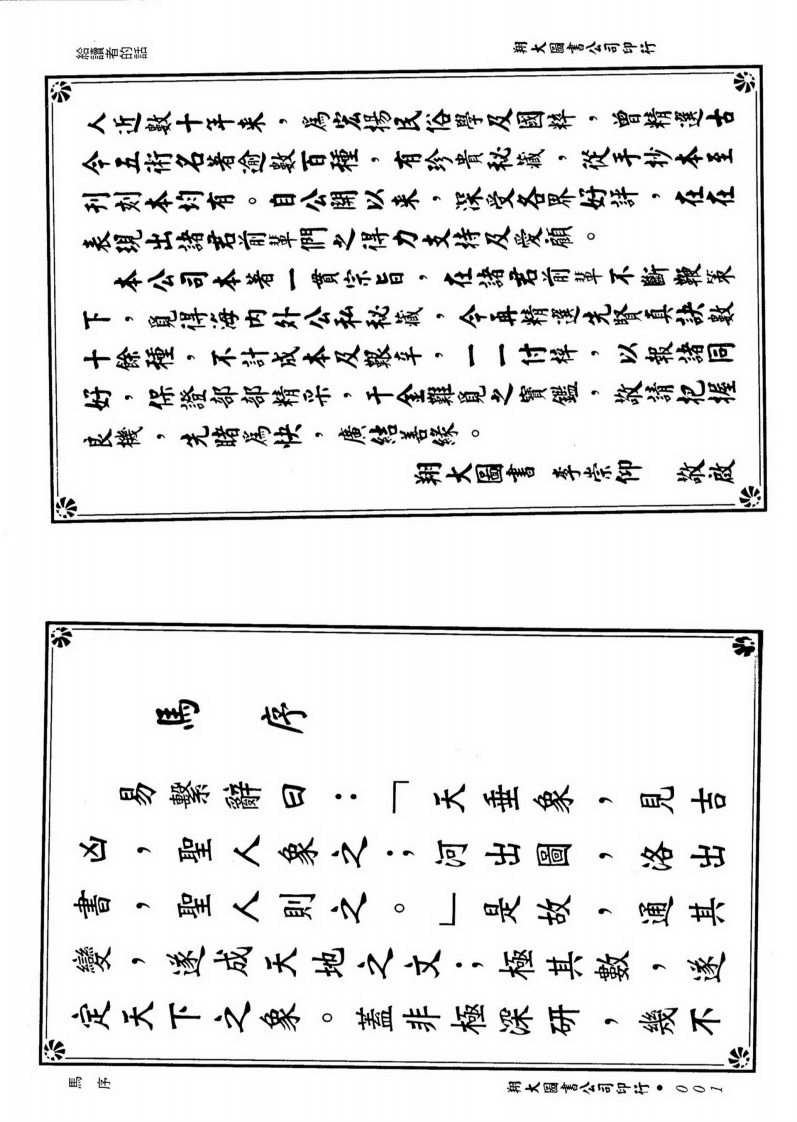 給讀者的話
翔大圖書公司印行
人近數十年来，爲宏揚民俗學及國粹，曾精選古
今五術名著逾數百種，有珍貴秘藏，從手抄本至
刊刻本均有。自公開以来，深受各界好評，在在
表現出諸君前輩們之得力支持及愛顧。
本公司本著一貫宗旨，在諸君前輩不斷鞭策
下，覓得海内外公私秘藏，今再精選先賢真訣數
十餘種，不計成本及艱辛，一一付梓，以報諸同
好，保證部部精采，千金難覓之寶鑑，敬請把握
良機，先睹爲快，廣結善緣。
翔大圖書 李崇仰 敬啟
馬序
易繫辭曰：「天垂象，見吉
凶，聖人象之；河出圖，洛出
書，聖人則之。」是故，通其
變，遂成天地之文；極其數，遂
定天下之象。蓋非極深研，幾不
馬序
翔大圖書公司印行•001